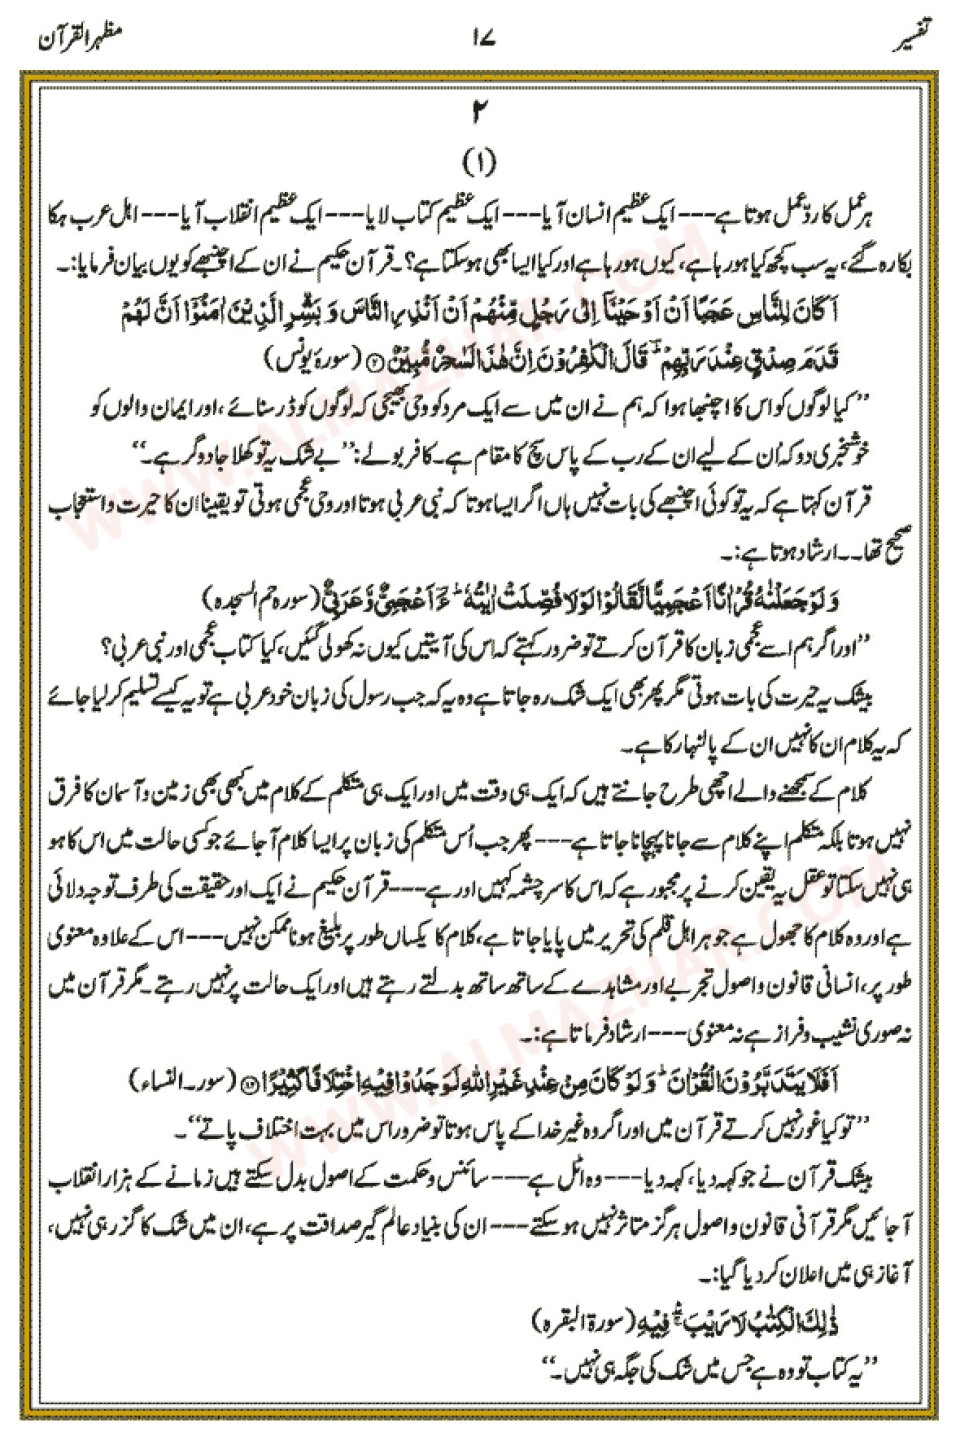 تفسیر ۱۷ مظہرالقرآن
۲
(۱)
ہر عمل کا ردِّ عمل ہوتا ہے --- ایک عظیم انسان آیا --- ایک عظیم کتاب لایا --- ایک عظیم انقلاب آیا --- اہل عرب ہکا
بکا رہ گئے، یہ سب کچھ کیا ہو رہا ہے، کیوں ہو رہا ہے اور کیا ایسا بھی ہو سکتا ہے؟۔ قرآن حکیم نے ان کے اچنبھے کو یوں بیان فرمایا:۔
اَکَانَ لِلنَّاسِ عَجَبًا اَنْ اَوْحَیْنَآ اِلٰی رَجُلٍ مِّنْھُمْ اَنْ اَنْذِرِ النَّاسَ وَ بَشِّرِ الَّذِیْنَ اٰمَنُوْٓا اَنَّ لَھُمْ
قَدَمَ صِدْقٍ عِنْدَ رَبِّھِمْ ؕ قَالَ الْکٰفِرُوْنَ اِنَّ ھٰذَا لَسٰحِرٌ مُّبِیْنٌ ۝۲ (سورہ یونس)
’’کیا لوگوں کو اس کا اچنبھا ہوا کہ ہم نے ان میں سے ایک مرد کو وحی بھیجی کہ لوگوں کو ڈر سنائے، اور ایمان والوں کو
خوشخبری دو کہ اُن کے لیے ان کے رب کے پاس سچ کا مقام ہے۔ کافر بولے: ’’بے شک یہ تو کھلا جادوگر ہے۔‘‘
قرآن کہتا ہے کہ یہ تو کوئی اچنبھے کی بات نہیں ہاں اگر ایسا ہوتا کہ نبی عربی ہوتا اور وحی عجمی ہوتی تو یقیناً ان کا حیرت و استعجاب
صحیح تھا۔۔ ارشاد ہوتا ہے:۔
وَ لَوْ جَعَلْنٰہُ قُرْاٰنًا اَعْجَمِیًّا لَّقَالُوْا لَوْ لَا فُصِّلَتْ اٰیٰتُہٗ ؕ ءَؔاَعْجَمِیٌّ وَّ عَرَبِیٌّ (سورہ حٰم السجدہ)
’’اور اگر ہم اسے عجمی زبان کا قرآن کرتے تو ضرور کہتے کہ اِس کی آیتیں کیوں نہ کھولی گئیں، کیا کتاب عجمی اور نبی عربی؟
بیشک یہ حیرت کی بات ہوتی مگر پھر بھی ایک شک رہ جاتا ہے وہ یہ کہ جب رسول کی زبان خود عربی ہے تو یہ کیسے تسلیم کر لیا جائے
کہ یہ کلام ان کا نہیں ان کے پالنہار کا ہے۔
کلام کے سمجھنے والے اچھی طرح جانتے ہیں کہ ایک ہی وقت میں اور ایک ہی متکلم کے کلام میں کبھی بھی زمین و آسمان کا فرق
نہیں ہوتا بلکہ متکلم اپنے کلام سے جانا پہچانا جاتا ہے --- پھر جب اُس متکلم کی زبان پر ایسا کلام آ جائے جو کسی حالت میں اس کا ہو
ہی نہیں سکتا تو عقل یہ یقین کرنے پر مجبور ہے کہ اس کا سرچشمہ کہیں اور ہے --- قرآن حکیم نے ایک اور حقیقت کی طرف توجہ دلائی
ہے اور وہ کلام کا جھول ہے جو ہر اہل قلم کی تحریر میں پایا جاتا ہے، کلام کا یکساں طور پر بلیغ ہونا ممکن نہیں --- اس کے علاوہ معنوی
طور پر، انسانی قانون و اصول تجربے اور مشاہدے کے ساتھ ساتھ بدلتے رہتے ہیں اور ایک حالت پر نہیں رہتے۔ مگر قرآن میں
نہ صوری نشیب و فراز ہے نہ معنوی --- ارشاد فرماتا ہے:۔
اَفَلَا یَتَدَبَّرُوْنَ الْقُرْاٰنَ ؕ وَ لَوْ کَانَ مِنْ عِنْدِ غَیْرِ اللہِ لَوَجَدُوْا فِیْہِ اخْتِلَافًا کَثِیْرًا ۝۸۲ (سور۔ النساء)
’’تو کیا غور نہیں کرتے قرآن میں اور اگر وہ غیر خدا کے پاس ہوتا تو ضرور اس میں بہت اختلاف پاتے‘‘۔
بیشک قرآن نے جو کہہ دیا، کہہ دیا --- وہ اٹل ہے --- سائنس و حکمت کے اصول بدل سکتے ہیں زمانے کے ہزار انقلاب
آ جائیں مگر قرآنی قانون و اصول ہرگز متاثر نہیں ہو سکتے --- ان کی بنیاد عالم گیر صداقت پر ہے، ان میں شک کا گزر ہی نہیں،
آغاز ہی میں اعلان کر دیا گیا:۔
ذٰلِکَ الْکِتٰبُ لَا رَیْبَ ۚۖۛ فِیْہِ (سورۃ البقرہ)
’’یہ کتاب تو وہ ہے جس میں شک کی جگہ ہی نہیں۔‘‘
WWW.ALMAZHAR.COM
WWW.ALMAZHAR.COM